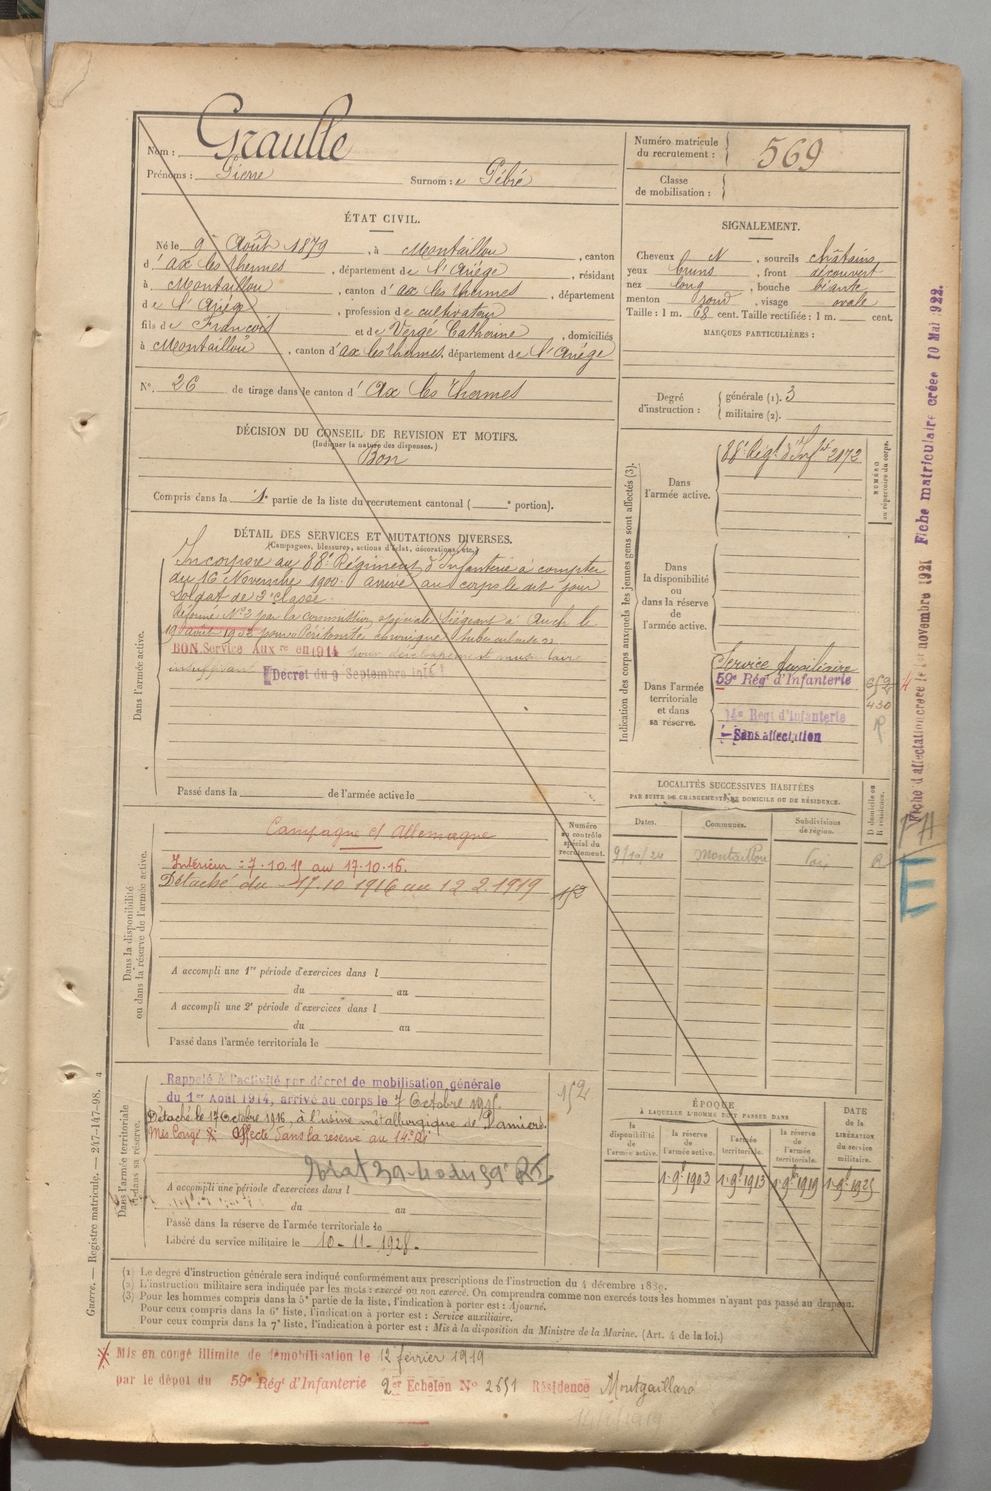 Nom : Graulle
Prénoms : Pierre Surnom : e Pébré
Numéro matricule du recrutement : 569
Classe de mobilisation :
ÉTAT CIVIL.
Né le 9 Août 1879, à Montaillou, canton
d' ax les thermes, département de l'Ariége, résidant
à Montaillou, canton d' ax les thermes, département
de l'Ariég, profession de cultivateur
fils de François et de Vergé Catherine, domiciliés
à Montaillou, canton d'ax les thermes, département de l'Ariége
N° 26 de tirage dans le canton d' Ax les Thermes
SIGNALEMENT.
Cheveux N, sourcils châtains
yeux bruns, front découvert
nez long, bouche béante
menton rond, visage ovale
Taille : 1 m. 68 cent. Taille rectifiée : 1 m. cent.
MARQUES PARTICULIÈRES :
Degré d'instruction : générale (1). 3
militaire (2).
DÉCISION DU CONSEIL DE REVISION ET MOTIFS.
(Indiquer la nature des dispenses.)
Bon
Compris dans la 1e partie de la liste du recrutement cantonal ( e portion).
DÉTAIL DES SERVICES ET MUTATIONS DIVERSES.
(Campagnes, blessures, actions d'éclat, décorations, etc.)
Dans l'armée active.
Incorporé au 88e Régiment d'Infanterie à compter
du 16 Novembre 1900. arrivé au corps le dit jour
Soldat de 2e classe
Réformé N°2 par la commission spéciale siégeant à Auch le
19 août 1902 pour Péritonite chronique tuberculeuse
BON Service Auxre en 1914 pour développement musculaire
insuffisant Décret du 9 Septembre 1914
Passé dans la de l'armée active le
Indication des corps auxquels les jeunes gens sont affectés (3).
NUMÉRO au répertoire du corps.
Dans l'armée active.
88e Régt d'Infie 2172
Dans la disponibilité ou dans la réserve de l'armée active.
Dans l'armée territoriale et dans sa réserve.
Service Auxiliaire
59e Régt d'Infanterie
430
14e Régt d'Infanterie
R
Sans affectation
LOCALITÉS SUCCESSIVES HABITÉES
PAR SUITE DE CHANGEMENTS DE DOMICILE OU DE RÉSIDENCE.
Dates. Communes. Subdivisions de région. D domicile ou R résidence.
9/10/24 Montaillou Foix R
Dans la disponibilité ou dans la réserve de l'armée active.
Numéro au contrôle spécial du recrutement.
Campagne c/ Allemagne
Intérieur : 7.10.15 au 17.10.16.
Détaché du 17.10 1916 au 12 2 1919
A accompli une 1re période d'exercices dans l
du au
A accompli une 2e période d'exercices dans l
du au
Passé dans l'armée territoriale le
Dans l'armée territoriale et dans sa réserve.
Rappelé à l'activité par décret de mobilisation générale
du 1er Août 1914, arrivé au corps le 7 Octobre 1915.
Détaché le 17 Octobre 1916, à l'usine métallurgique de Pamiers.
Mis Congé Affecté dans la réserve au 14e RI
A accompli une période d'exercices dans l
du au
Passé dans la réserve de l'armée territoriale le
Libéré du service militaire le 10 - 11 - 1928.
ÉPOQUE
À LAQUELLE L'HOMME DOIT PASSER DANS
la disponibilité de l'armée active. la réserve de l'armée active. l'armée territoriale. la réserve de l'armée territoriale. DATE de la LIBÉRATION du service militaire.
1er 9bre 1903 1er 9bre 1913 1er 9bre 1919 1er 9bre 1925
(1) Le degré d'instruction générale sera indiqué conformément aux prescriptions de l'instruction du 4 décembre 1889.
(2) L'instruction militaire sera indiquée par les mots : exercé ou non exercé. On comprendra comme non exercés tous les hommes n'ayant pas passé au drapeau.
(3) Pour les hommes compris dans la 5e partie de la liste, l'indication à porter est : Ajourné.
Pour ceux compris dans la 6e liste, l'indication à porter est : Service auxiliaire.
Pour ceux compris dans la 7e liste, l'indication à porter est : Mis à la disposition du Ministre de la Marine. (Art. 4 de la loi.)
Mis en congé illimité de démobilisation le 12 février 1919
par le dépôt du 59e Régt d'Infanterie 2er Echelon N° 2651 Résidence Montgaillard
Guerre. — Registre matricule. — 247-147-98. 4
Fiche d'affectation créée le 1er novembre 1921 Fiche matriculaire créée 10 Mai 1922.
E